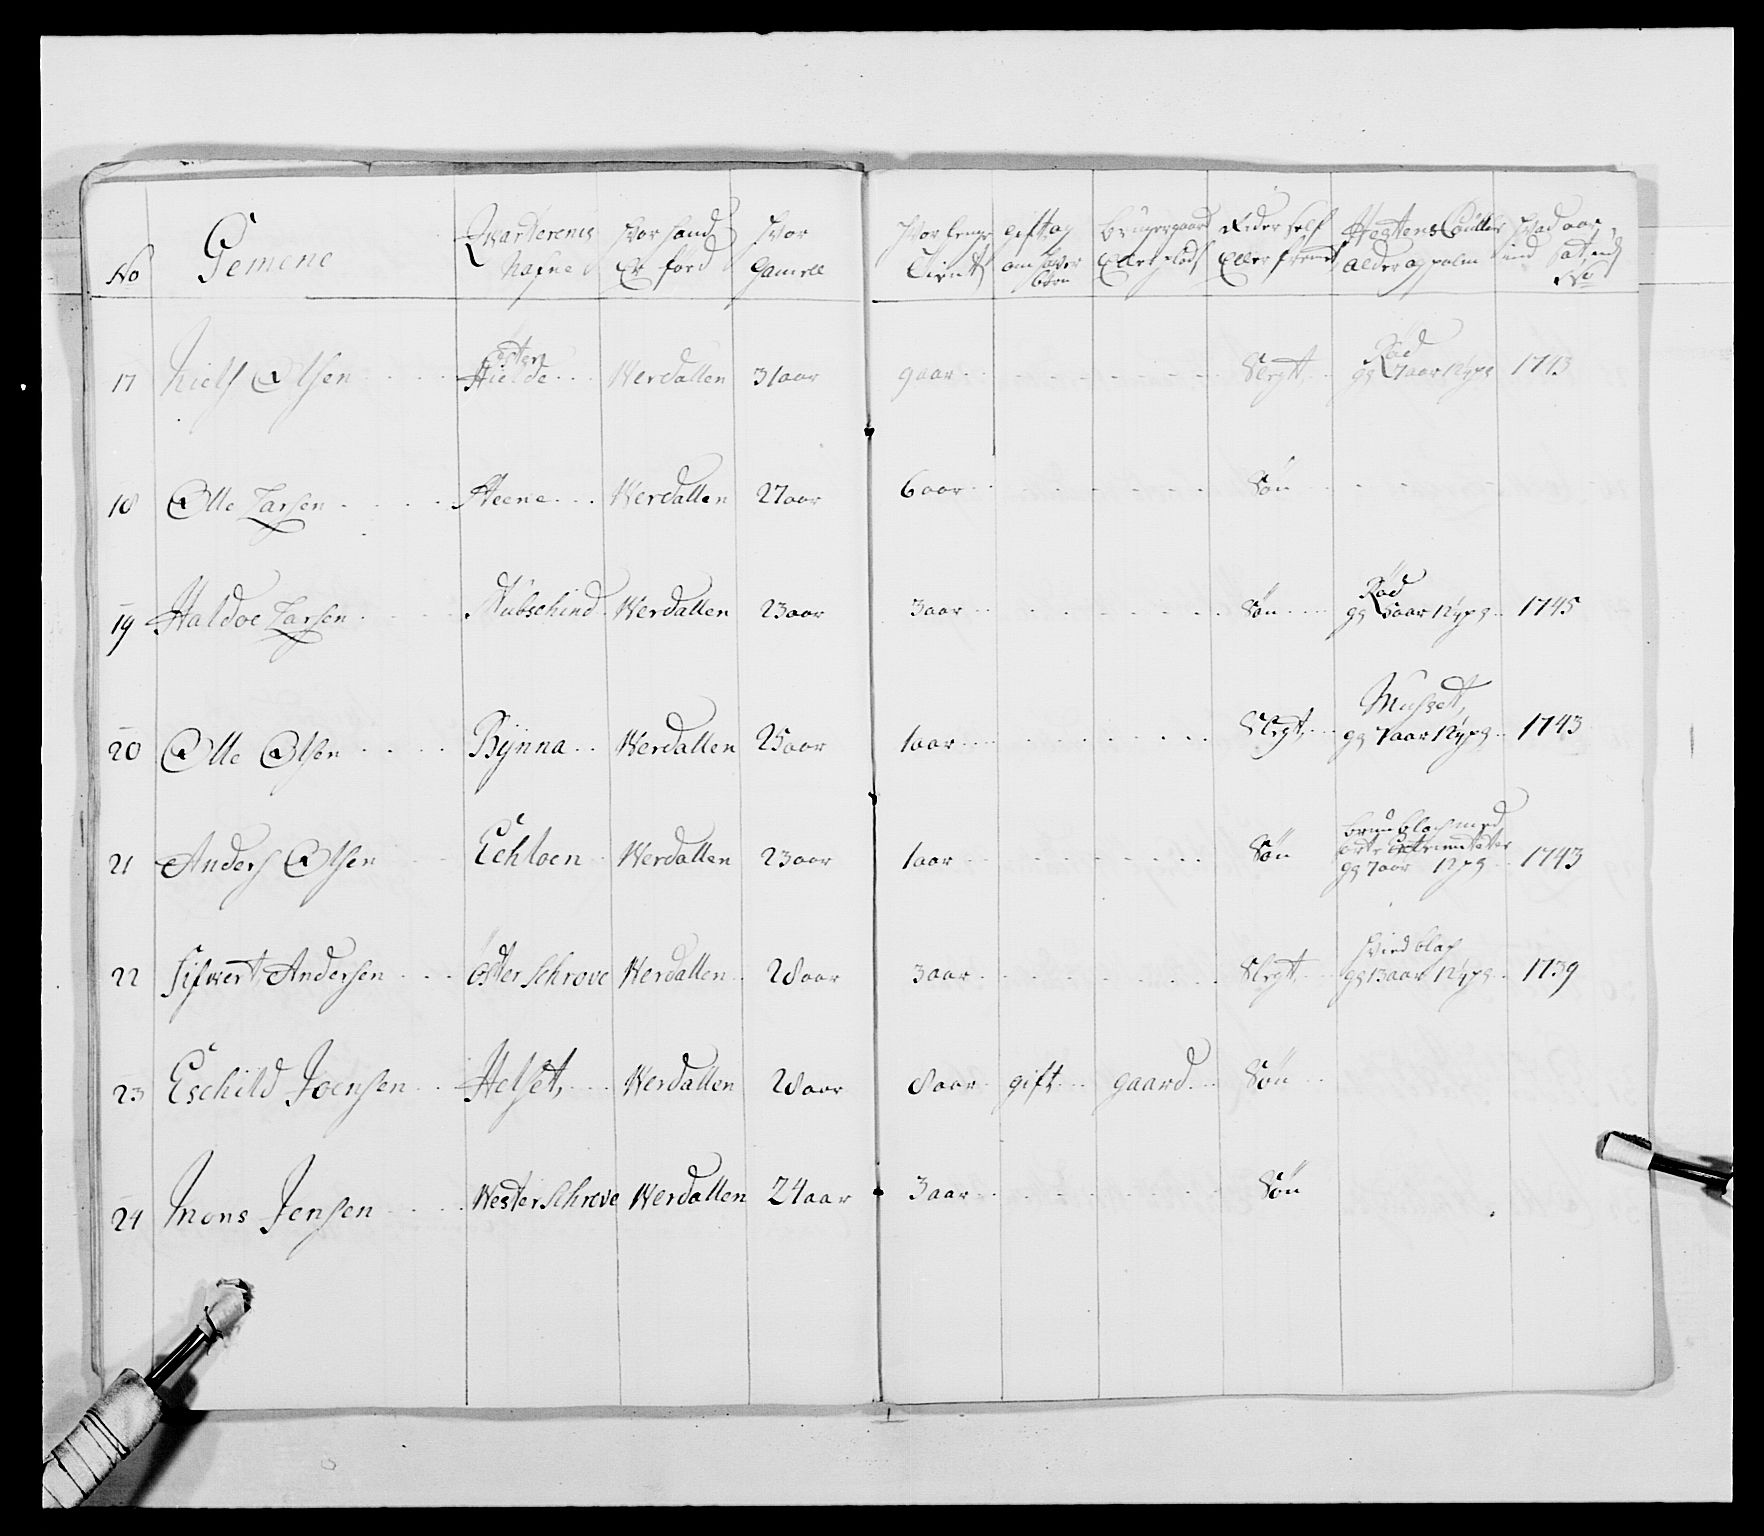 No Gemene Qvarterens Nafne Hvor hand Er förd Hvor Gamell Hvor lenge Tient gift og om haver børn bruger gaard Eller plads Rider self Eller fremet Hestens Coulleur alder og palm Hvad aar ind sat, end No
17 Niels Olsen Öster Hielde Werdallen 31 aar 9 aar Slegt Röd gg 7 aar 12 qvg 1743
18 Olle Larsen Steene Werdallen 27 aar 6 aar Søn
19 Haldoe Larsen Kubschind Werdallen 23 aar 3 aar Søn Röd gg 5 aar 12 qvg 1745
20 Olle Olsen Bÿnna Werdallen 25 aar 1 aar Slegt Musset, gg 7 aar 12 qvg 1743
21 Anders Olsen Echloen Werdallen 23 aar 1 aar Søn brunblach med gg 7 aar 12 qvg 1743
22 Sifwert Andersen öster Schrove Werdallen 28 aar 3 aar Slegt Hvidblach gg 13 aar 12 qvg 1739
23 Eschild Joensen Helset, Werdallen 28 aar 8 aar gift gaard Søn
24 Mons Jensen Wester Schrove Werdallen 24 aar 3 aar Søn